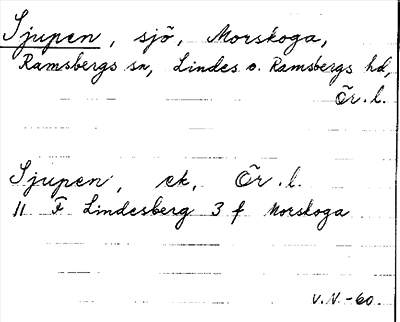 Sjupen, sjö, Morskoga,
Ramsbergs sn, Lindes o. Ramsbergs hd,
Ör. l.
Sjupen, ek, Ör. l.
11 F Lindesberg 3 f Morskoga
V.V. -60.